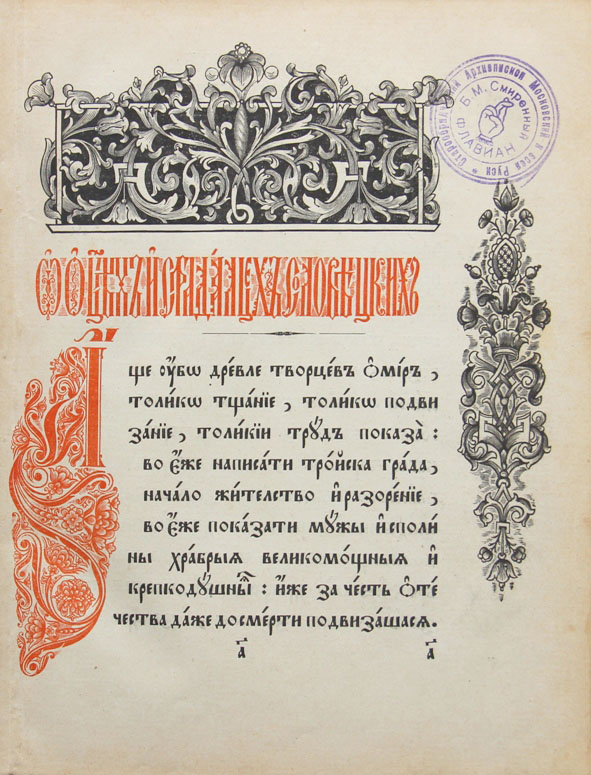 Старообрядческий Архиепископ Московский и всея Руси
Б. М. Смиренный
ФЛАВИАН
Ѡ О҆ц҃ѣхъ и҆ страда́лцехъ соловѣцкихъ
А҆́ще ᲂу҆́бѡ дре́вле творце́въ Ѻ҆мі́ръ,
толи́кѡ тща́нїе, толи́кѡ подви
за́нїе, толи́кїи трꙋ́дъ показа̀ :
во є҆́же написа́ти тро́йска гра́да,
нача́ло жи́тельство и҆ разоре́нїе,
во є҆́же показа́ти мꙋ́жы и҆споли́
ны хра́брыя великомо́щныя и҆
крепкодꙋ́шныѧ : и҆́же за че́сть ѻ҆те́
чества да́же до сме́рти подвиза́шася.
а҃ а҃